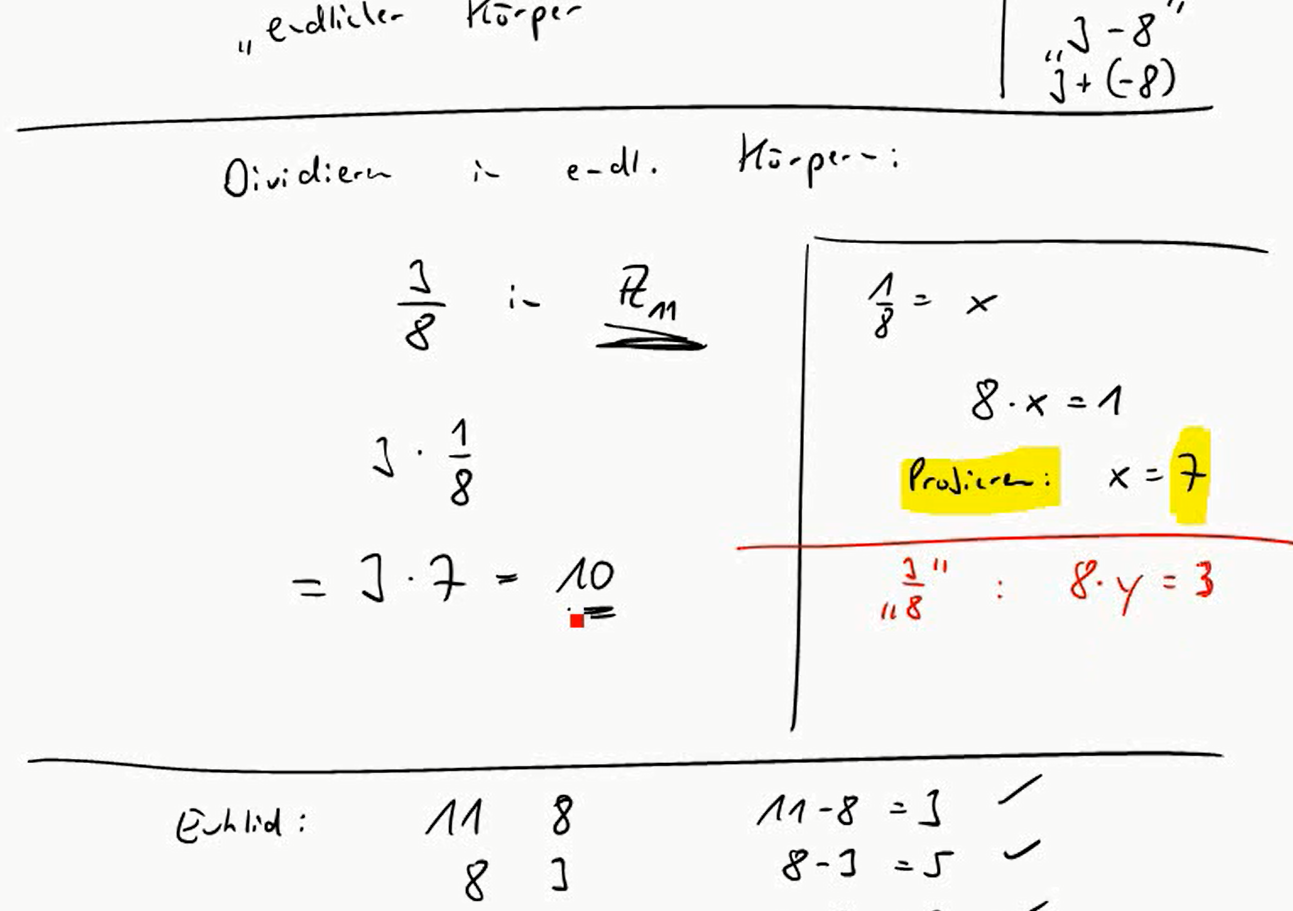 „endlicher Körper
„3 - 8"
3 + (-8)
Dividieren in endl. Körpern:
3/8 in ℤ₁₁
1/8 = x
8 · x = 1
3 · 1/8
Probieren: x = 7
= 3 · 7 = 10
„3/8" : 8 · y = 3
Euklid: 11 8 11 - 8 = 3 ✓
8 3 8 - 3 = 5 ✓